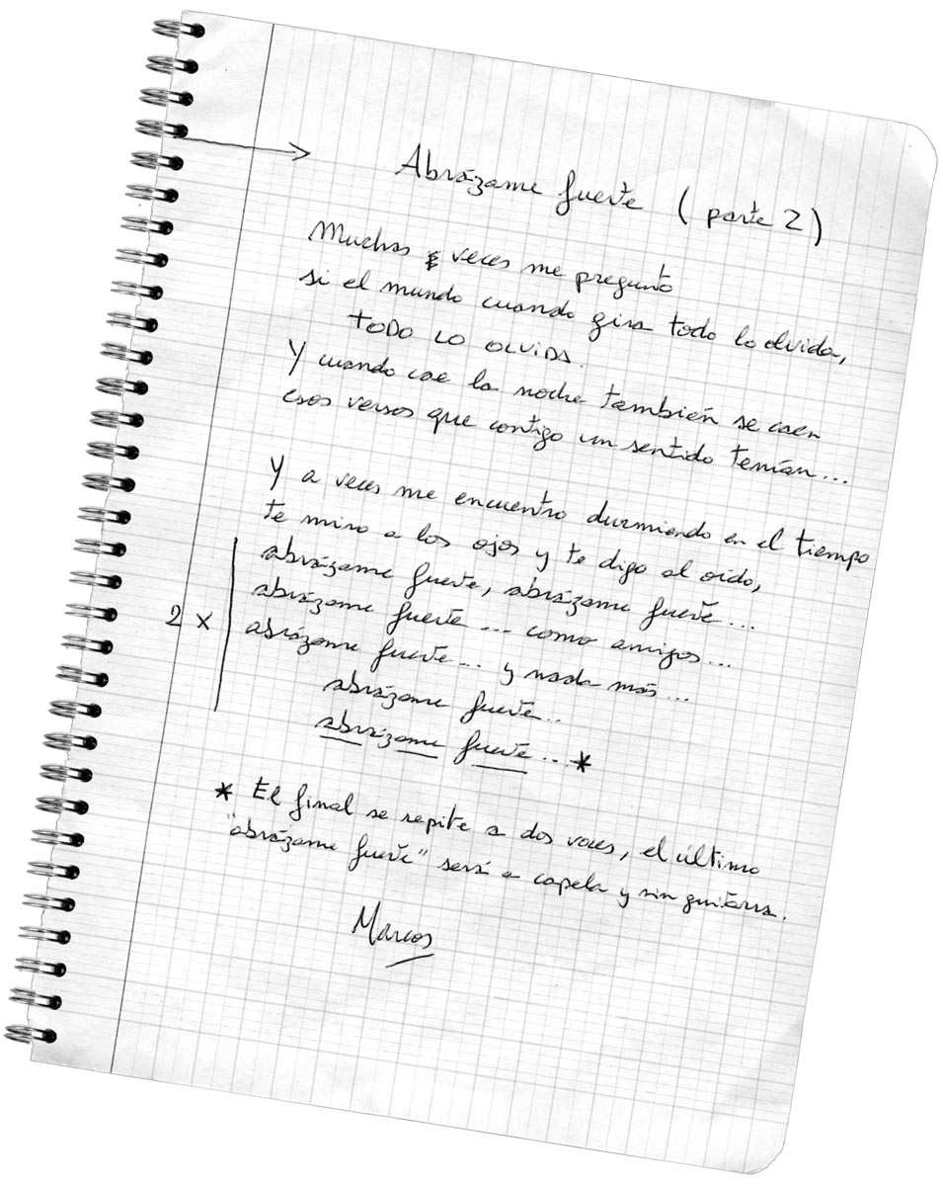 Abrázame fuerte (parte 2)
Muchas veces me pregunto
si el mundo cuando gira todo lo olvida,
TODO LO OLVIDA.
Y cuando cae la noche también se caen
esos versos que contigo un sentido tenían...
Y a veces me encuentro durmiendo en el tiempo
te miro a los ojos y te digo al oído,
abrázame fuerte, abrázame fuerte...
2 x
abrázame fuerte... como amigos...
abrázame fuerte... y nada más...
abrázame fuerte...
abrázame fuerte...*
* El final se repite a dos voces, el último
"abrázame fuerte" será a capela y sin guitarra.
Marcos